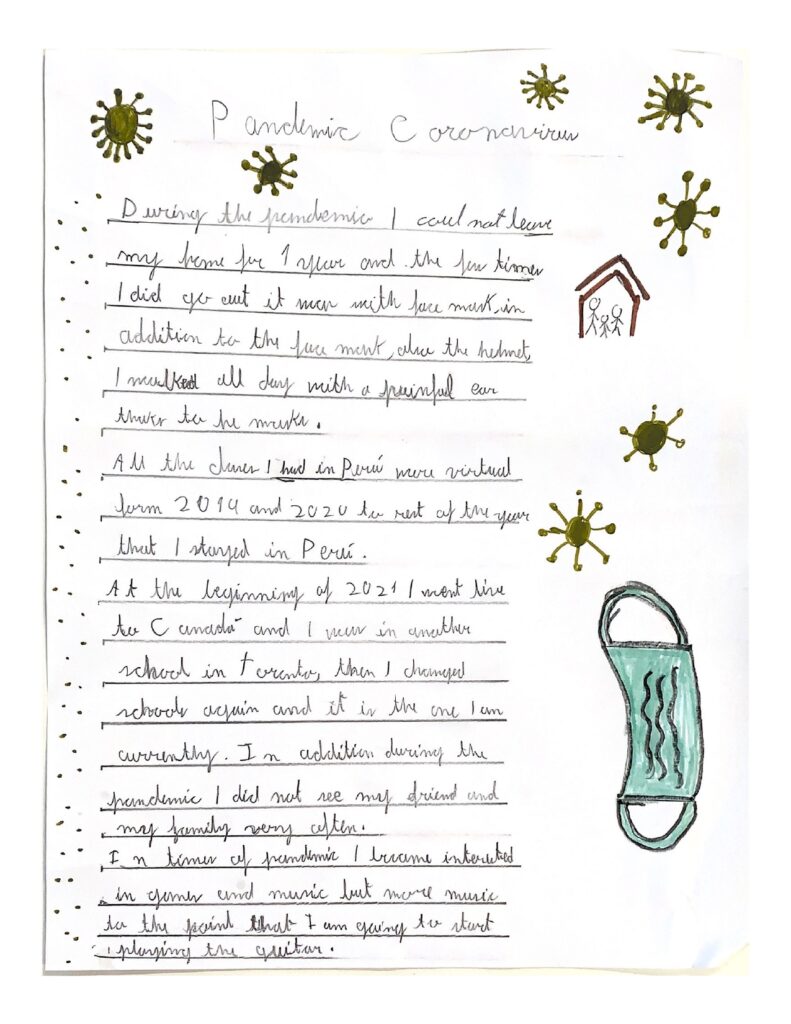 Pandemic Coronavirus
During the pandemic I coul not leave
my home for 1 year and the few times
I did go out it was with face mask, in
addition to the face mask, also the helmet,
I walked all day with a painful ear
thaks to he masks.
All the clases I had in Perú were virtual
form 2019 and 2020 to rest of the year
that I stayed in Perú.
At the beginning of 2021 I went live
to Canadá and I was in another
school in toronto, then I changed
schools again and it is the one I am
currently. In addition during the
pandemic I did not see my friend and
my family very often.
In times of pandemic I became interested
in games and music but more music
to the point that I am going to start
playing the guitar.